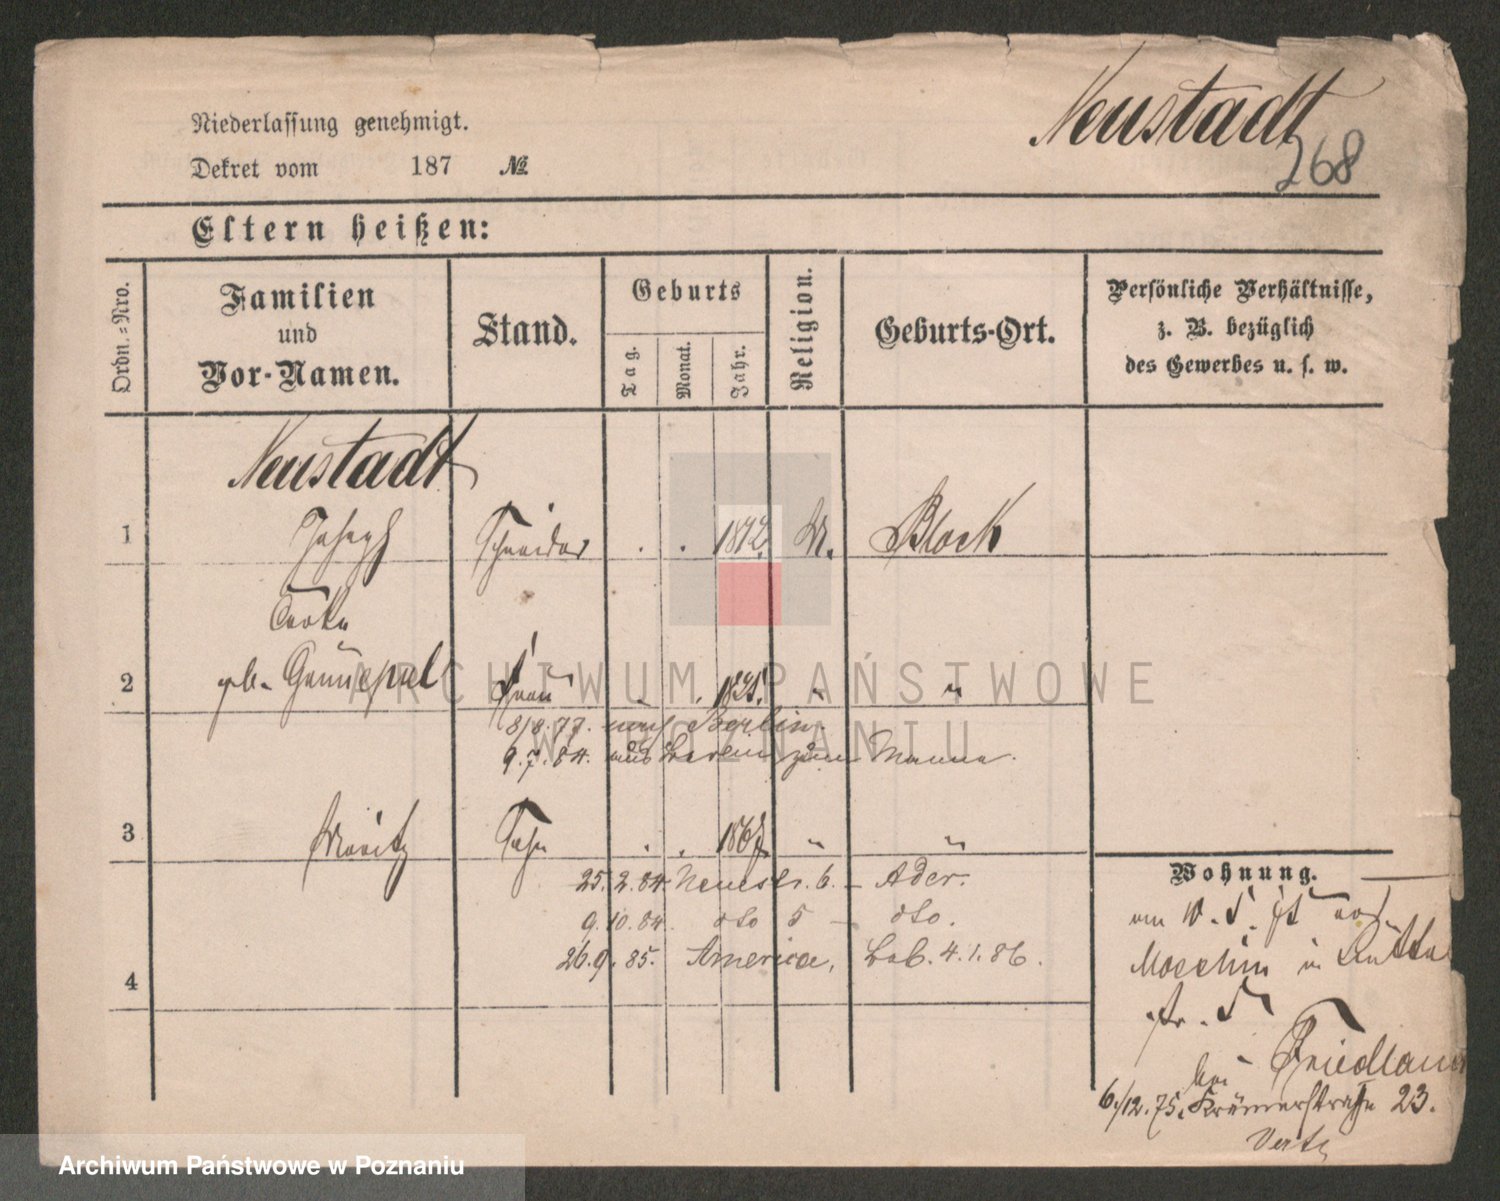 Neustadt
268
Niederlassung genehmigt.
Dekret vom 187 №
Eltern heißen:
Ordn.-Nro.
Familien
und
Vor-Namen.
Stand.
Geburts
Tag.
Monat.
Jahr.
Religion.
Geburts-Ort.
Persönliche Verhältnisse,
z. B. bezüglich
des Gewerbes u. s. w.
Neustadt
1 Joseph Schneider . . 1812. M. Block
2 geb. Frau . . " "
ARCHIWUM PAŃSTWOWE
W POZNANIU
8/8.77. nach Berlin.
9.7.84. aus Berlin zum Manne.
3 Moritz Sohn . . 1867 " "
25.2.84. Neuestr. 6. – Ader.
9.10.84. dto 5 – dto.
26.9.85. America, Lab. 4.1.86.
4
Wohnung.
von
in
str. 5
bei Friedland
6/12.75. Krämerstraße 23.
Archiwum Państwowe w Poznaniu